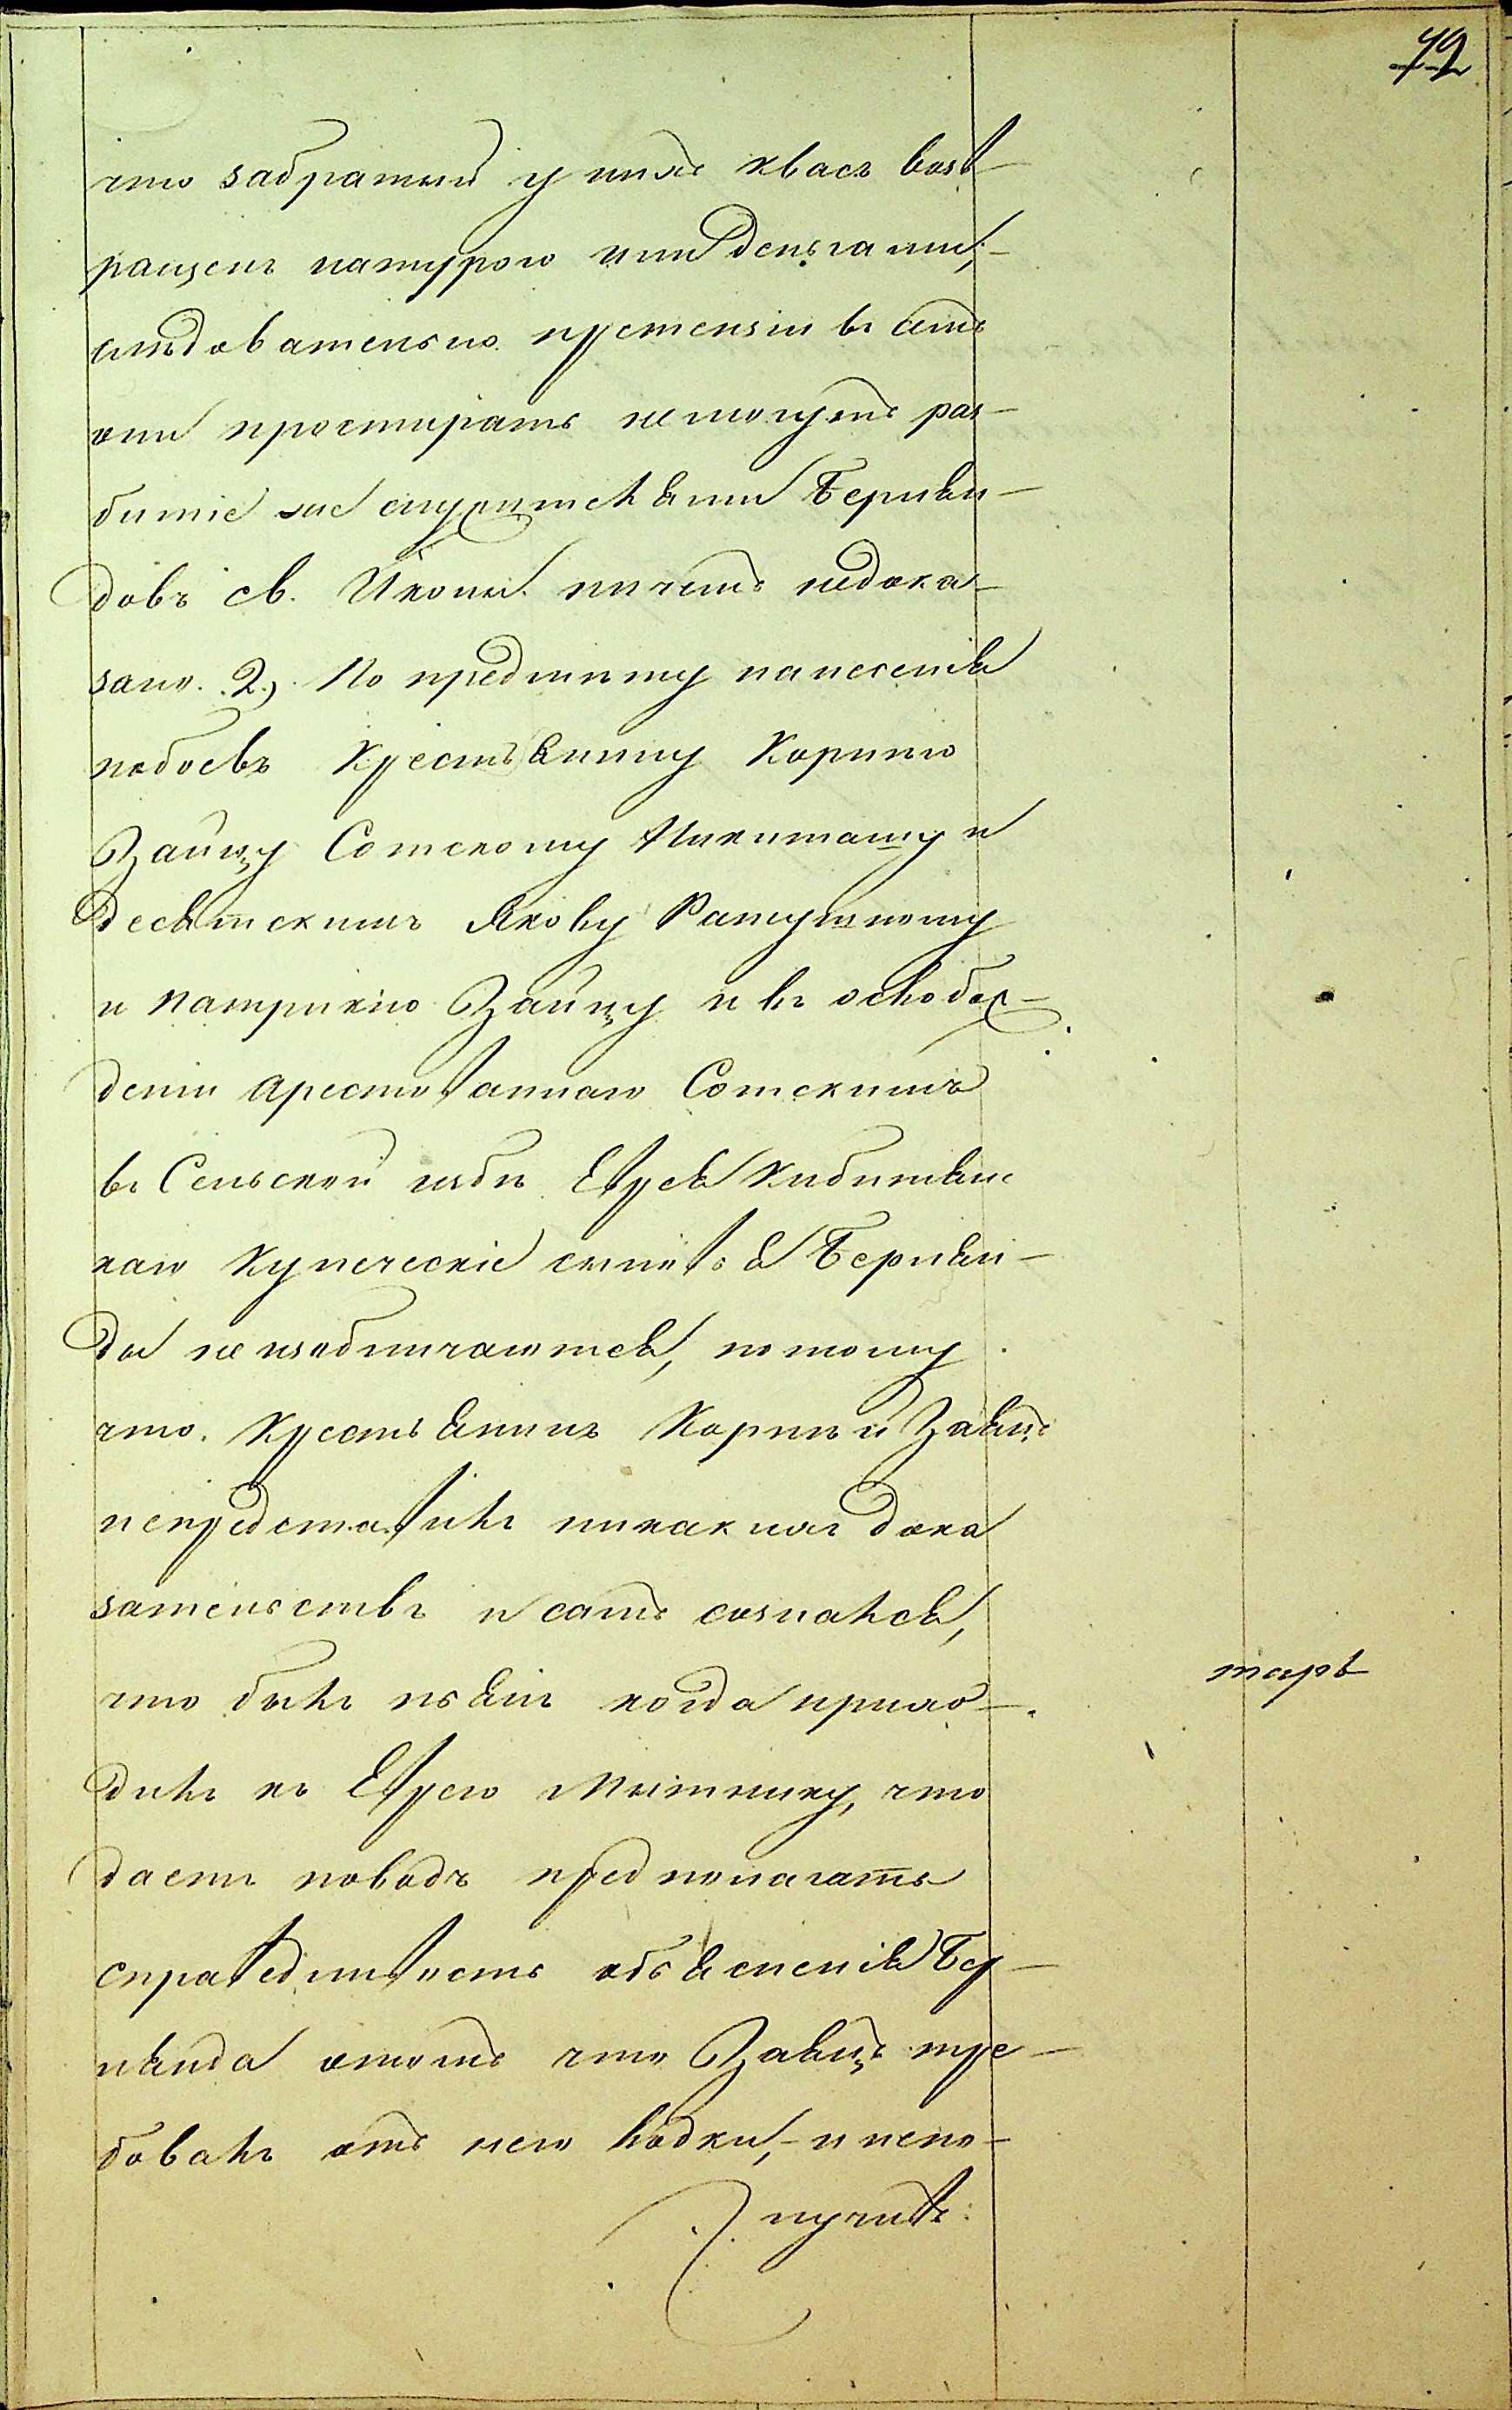 72
что забратый у нихъ квасъ возв-
ращенъ натурою или деньгами,-
слѣдовательно претензіи въ семъ
они простирать не могутъ раз-
битіе же служителями Бернян-
довъ св. Иконы ничемъ недока-
зано. 2, По предмѣту нанесенія
побоевъ Крестьянину Корнию
Зайцу Сотскому Микиташу и
десятскимъ Якову Ратушному
и Патрикію Зайцу и въ освобож-
деніи арестованнаго Сотскимъ
въ Сельской избѣ Еврея Кибитян
каго Купеческіе сыновья Берлян-
ды не изобличаются, потому
что Крестьянинъ Корнѣй Заяцъ
непредставилъ никакихъ дока
зательствъ и самъ сознался,
что былъ пьянъ когда прихо-
дилъ къ Еврею Мытнику, что
даетъ поводъ предполагать
справедливость объясненія Бер-
лянда отомъ что Заяцъ тре-
бовалъ отъ него водки,- и непо-
лучивъ